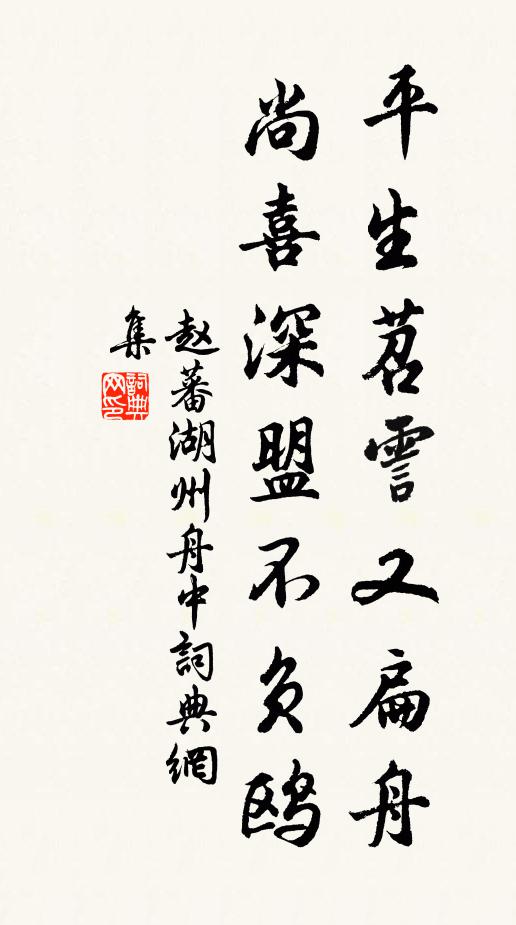 平生苕霅又扁舟
尚喜深盟不负鸥
赵蕃湖州舟中詞典網
集
詞典
网印